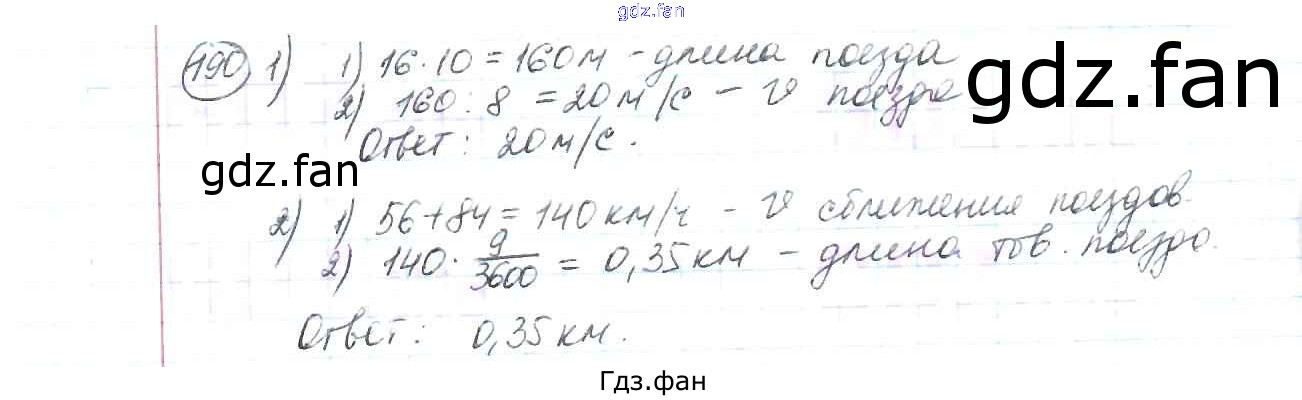 gdz.fan
490 1) 1) 16·10 = 160м - длина поезда
2) 160 : 8 = 20м/с - v поезда
gdz.fan
Ответ: 20м/с.
gdz.fan
2) 1) 56+84 = 140км/ч - v сближения поездов.
2) 140 · 9/3600 = 0,35км - длина тов. поезда.
Ответ: 0,35км.
Гдз.фан